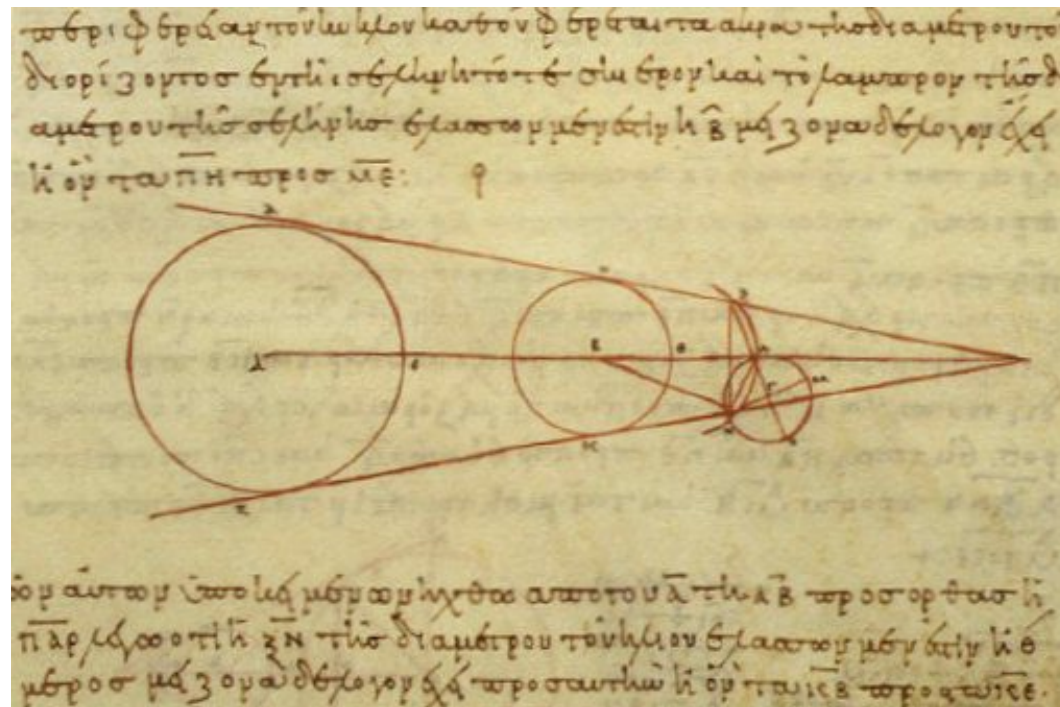 περιφέρειαν τοῦ κύκλου καθ οὗ φέρεται τὰ ἄκρα τῆς διαμέτρου το
διορίζοντος ἐν τῆι σελήνηι τό τε σκιερὸν καὶ τὸ λαμπρὸν τῆς δ
αμέτρου τῆς σελήνης ἐλάσσων μέν ἐστιν ἢ β̅ μείζονα δὲ λόγον ἔχει
ἢ ὃν τὰ π̅η̅ πρὸς μ̅ε̅:
αὐτῶν ὑποκειμένων ἤχθω ἀπὸ τοῦ α̅ τῆι α̅β̅ πρὸς ὀρθὰς ἡ
π̅α̅ρ̅ λέγω ὅτι ἡ ξ̅ν̅ τῆς διαμέτρου τοῦ ἡλίου ἐλάσσων μέν ἐστιν ἢ θ
μέρος μείζονα δὲ λόγον ἔχει πρὸς αὐτὴν ἢ ὃν τὰ